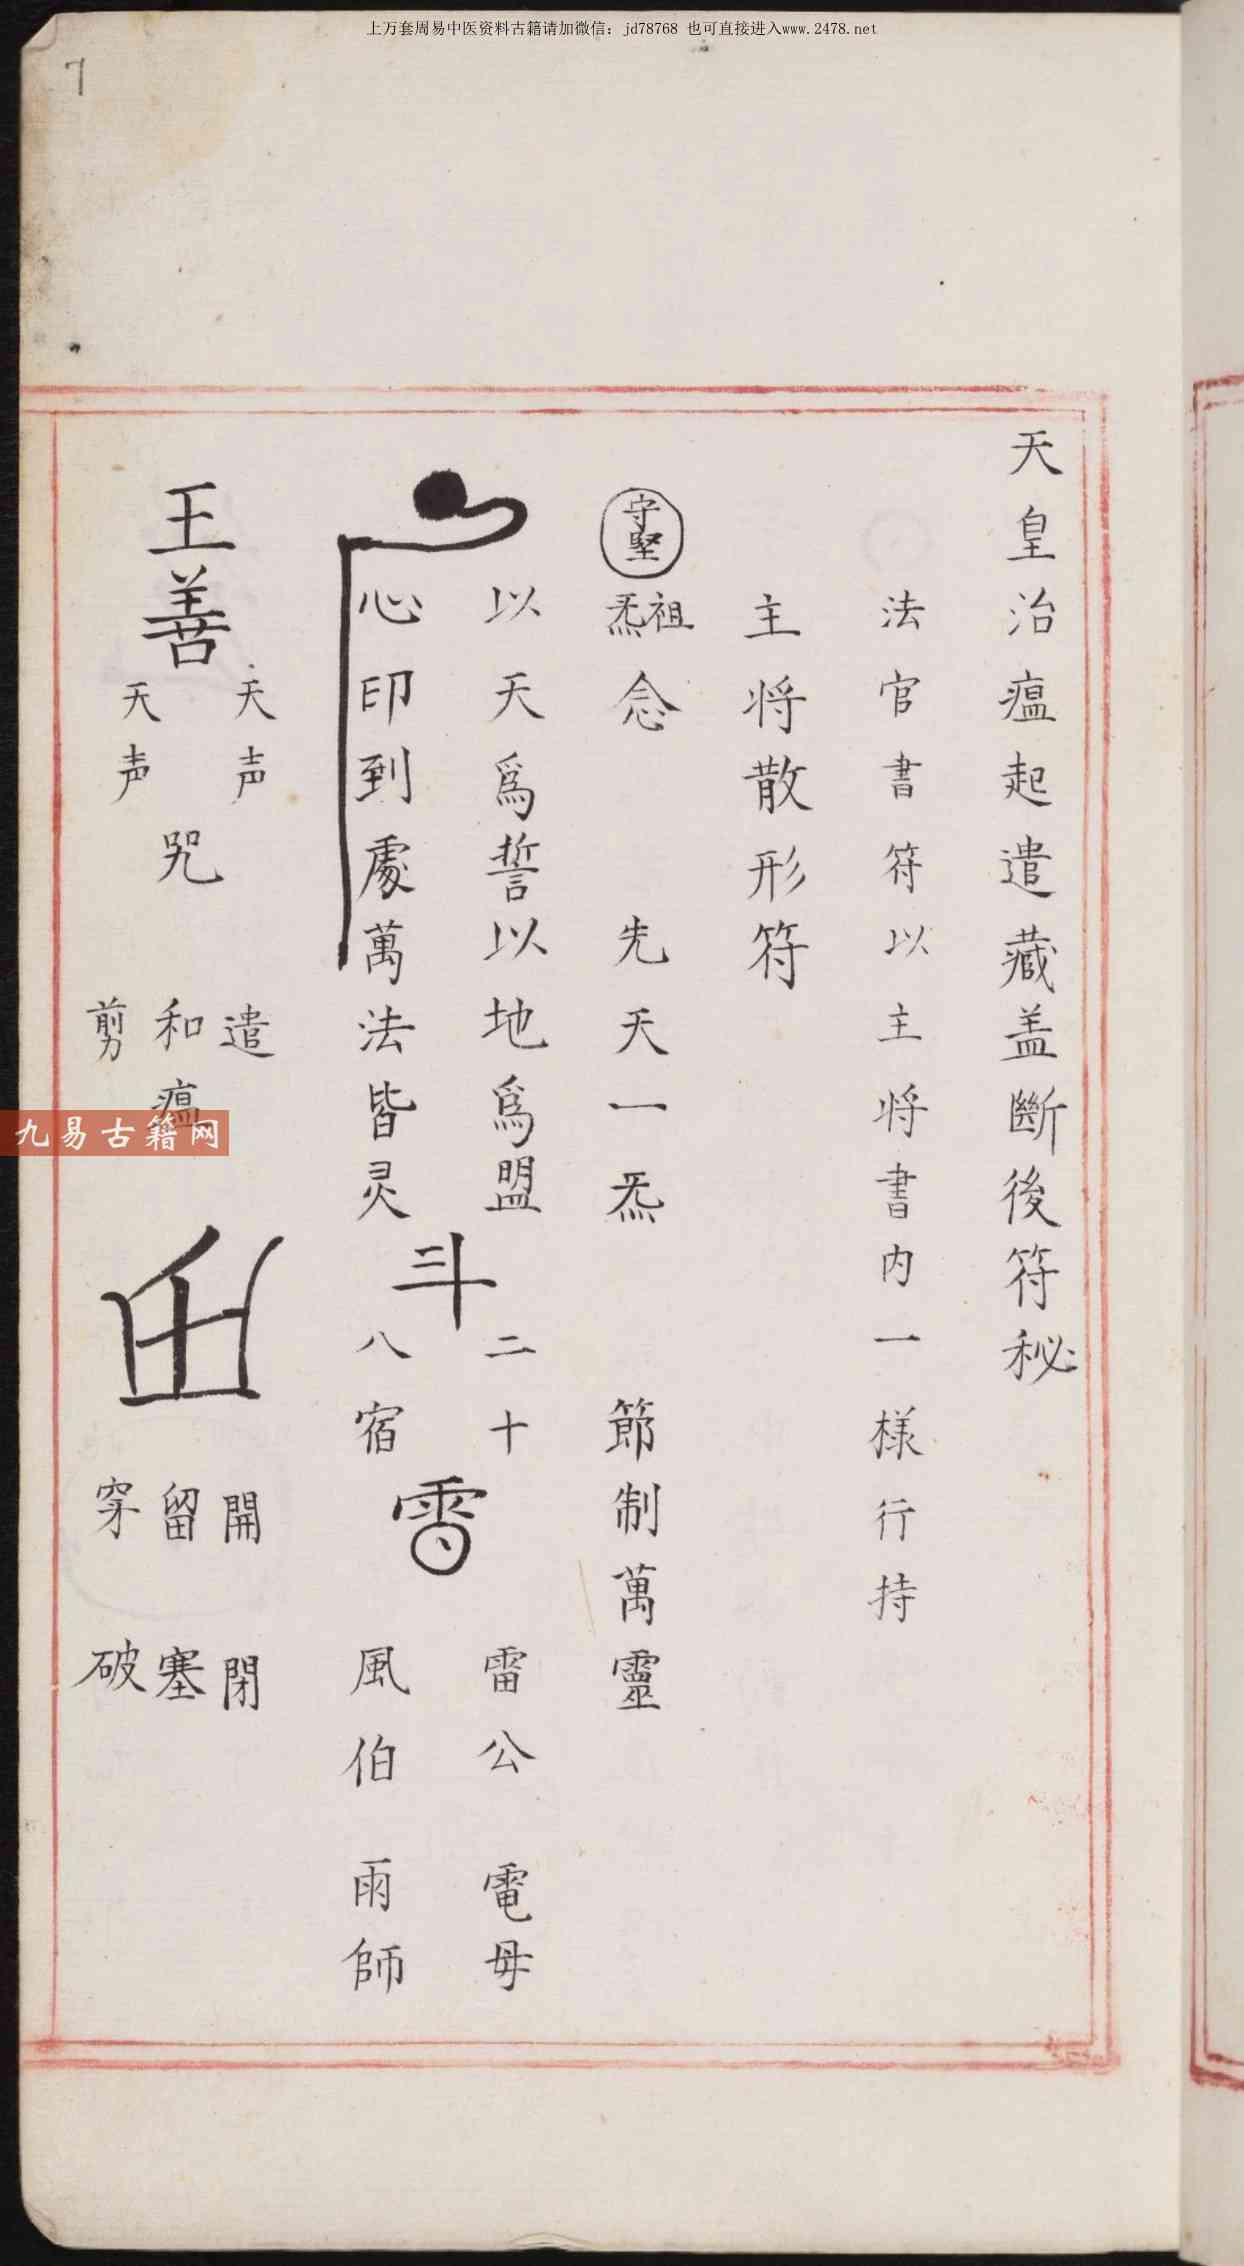 上万套周易中医资料古籍请加微信：jd78768 也可直接进入www.2478.net
7
天皇治瘟起遣藏盖斷後符秘
法官書符以主将書内一樣行持
主将散形符
守堅
祖炁念 先天一炁 節制萬靈
以天爲誓以地爲盟 二十 雷公 電母
斗
心印到處萬法皆灵 八宿 風伯 雨師
天声 遣 開 閉
王善 咒 和瘟 留 塞
天声 剪 穿 破
九易古籍网